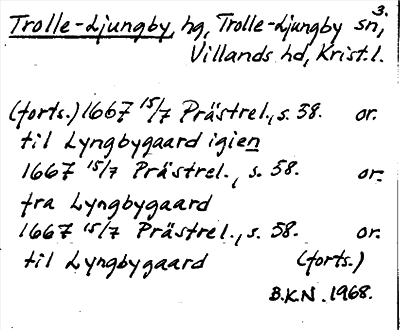 3.
Trolle-Ljungby, hg, Trolle-Ljungby sn,
Villands hd, Krist. l.
(forts.) 1667 15/7 Prästrel., s. 58. or.
til Lyngbygaard igien
1667 15/7 Prästrel., s. 58. or.
fra Lyngbygaard
1667 15/7 Prästrel., s. 58. or.
til Lyngbygaard (forts.)
B.K.N. 1968.